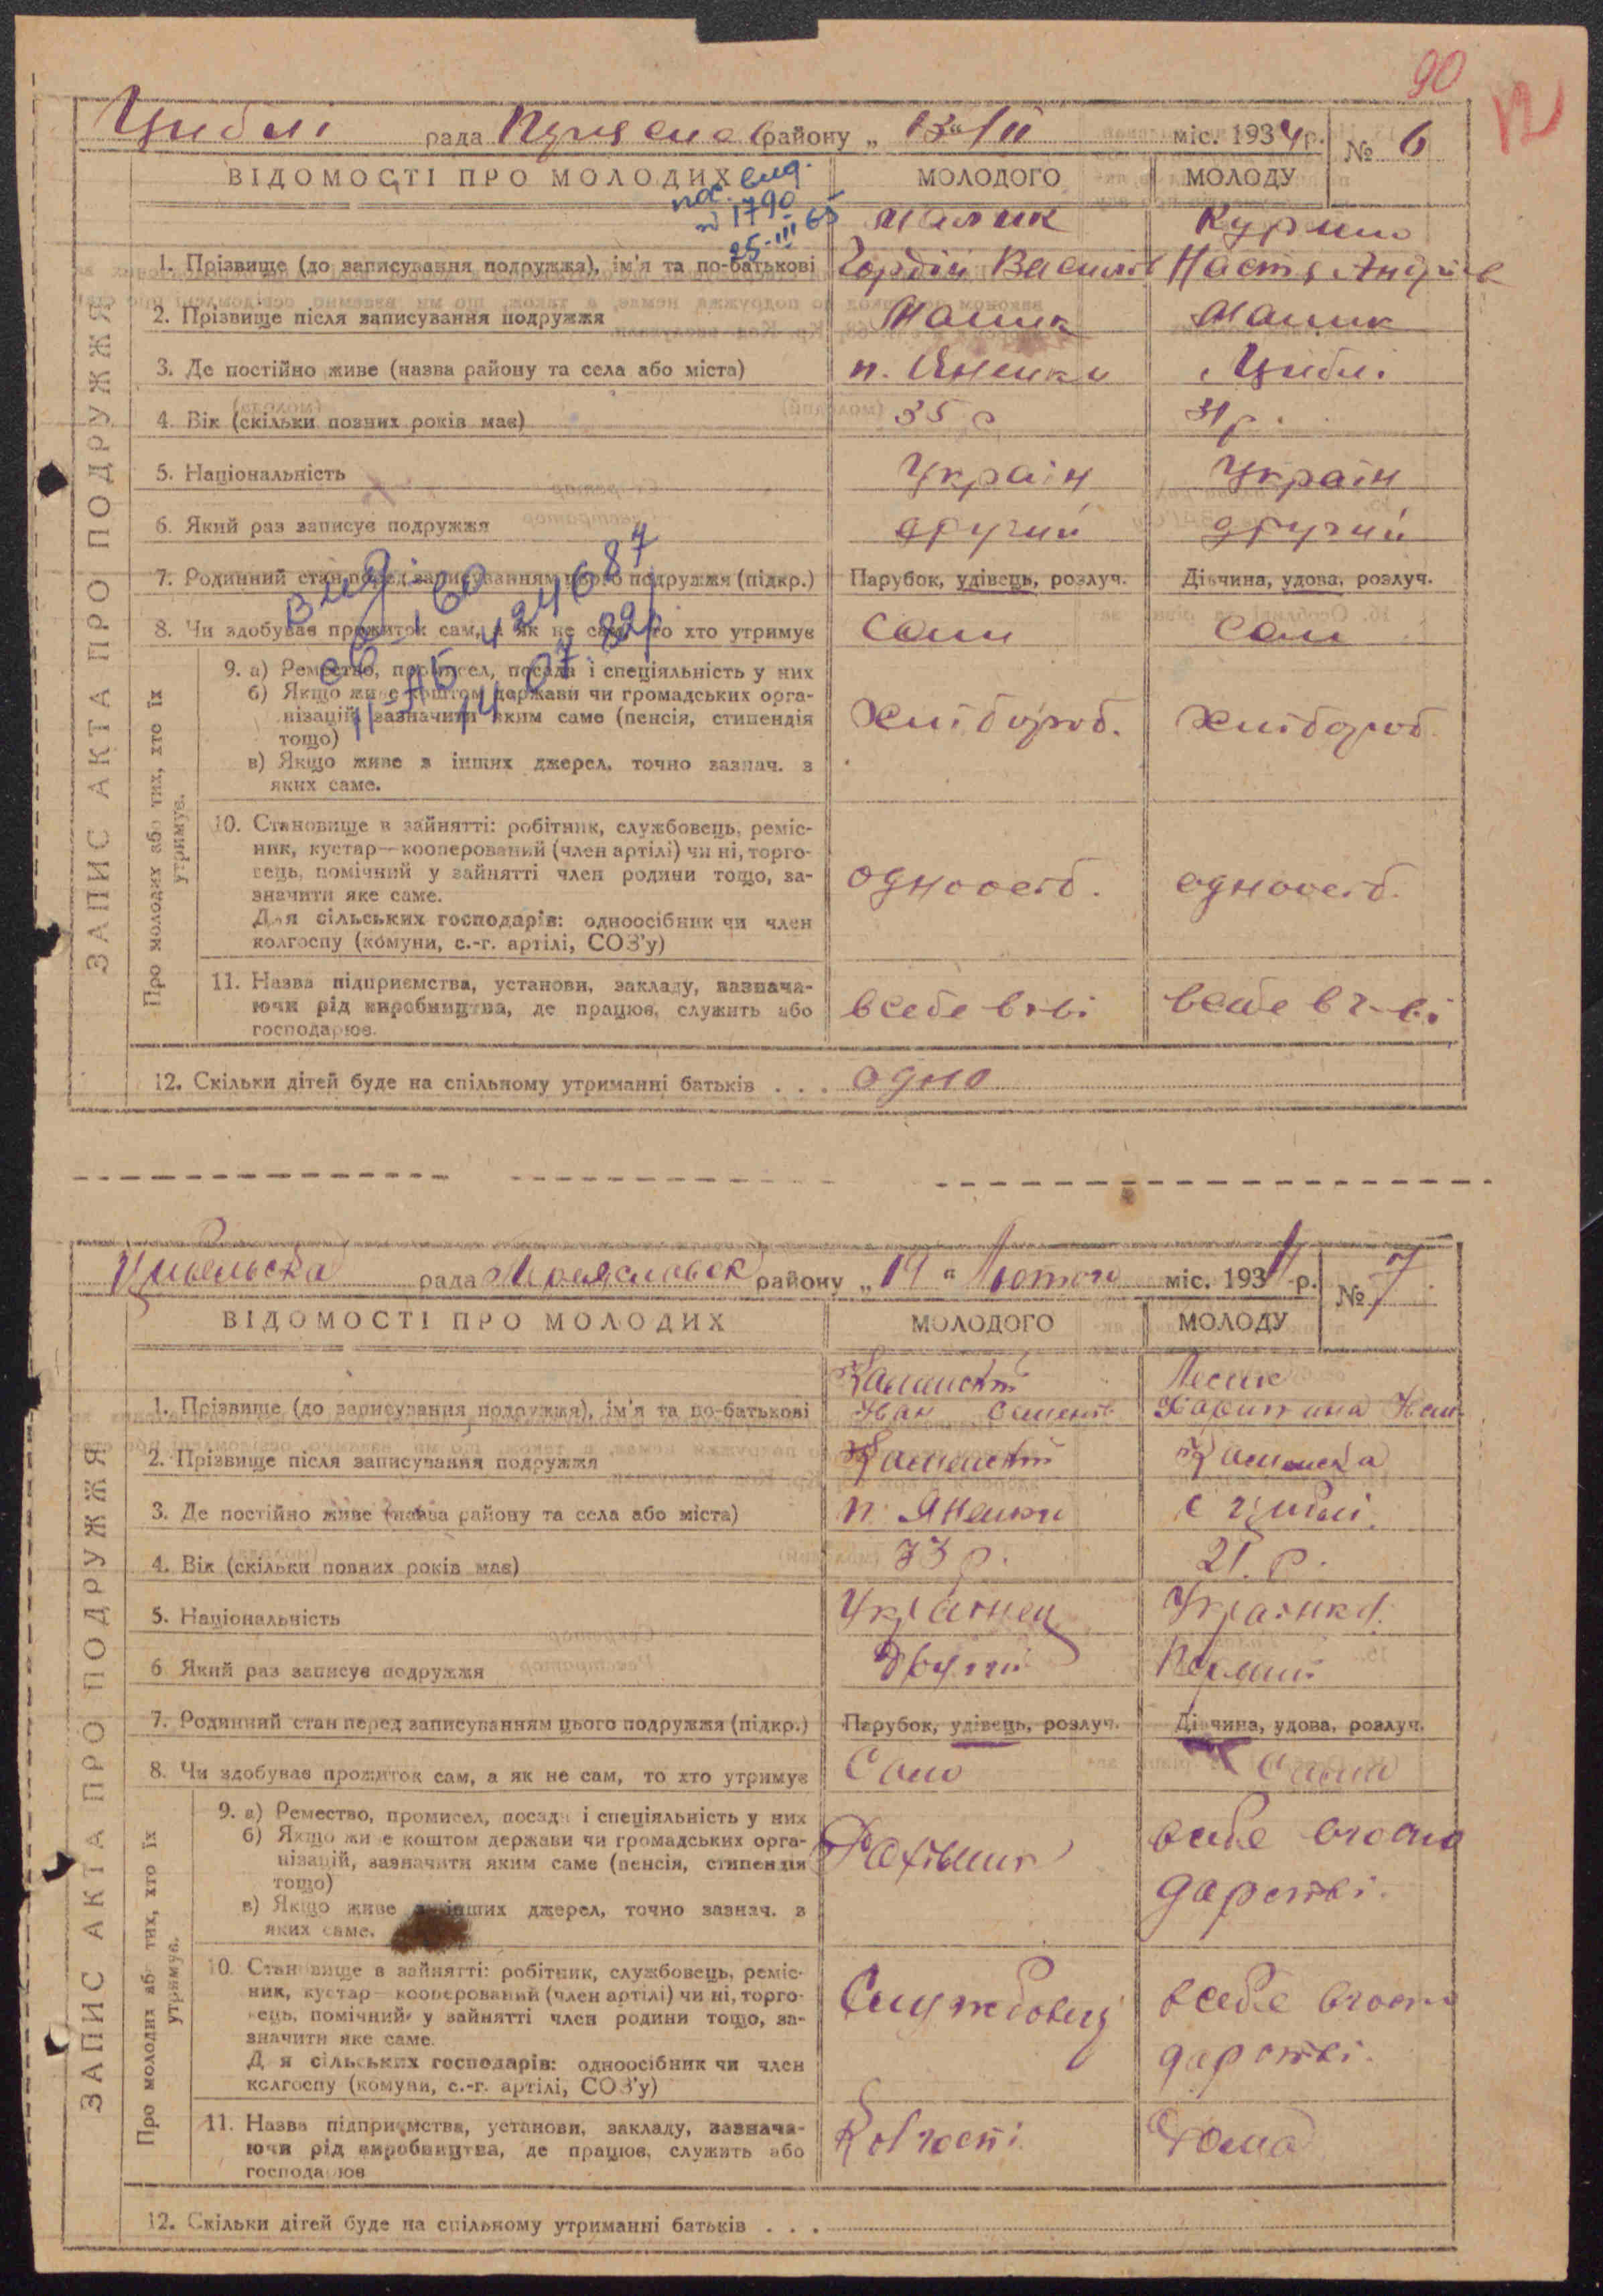 90
12
Циблі рада району „ 13 “ /II міс. 1934 р. № 6
ВІДОМОСТІ ПРО МОЛОДИХ МОЛОДОГО МОЛОДУ
пас. вид.
№ 1790
25-III 65
Малик
1. Прізвище (до записування подружжя), ім'я та по-батькові Гордій Василів Настя Андріїв
2. Прізвище після записування подружжя Малик Малик
3. Де постійно живе (назва району та села або міста) п. Яненки Циблі
4. Вік (скільки повних років має) 35 р 31 р.
5. Національність Україн Україн
6. Який раз записує подружжя другий другий
7. Родинний стан перед записуванням цього подружжя (підкр.) Парубок, удівець, розлуч. Дівчина, удова, розлуч.
8. Чи здобуває прожиток сам, а як не сам, то хто утримує Сам Сам
ЗАПИС АКТА ПРО ПОДРУЖЖЯ
Про молодих або тих, хто їх утримує.
9. а) Ремество, промисел, посада і спеціяльність у них
б) Якщо живе коштом держави чи громадських орга-
нізацій, зазначити яким саме (пенсія, стипендія
тощо) Хлібороб. Хлібороб.
в) Якщо живе з інших джерел, точно зазнач. з
яких саме.
10. Становище в зайнятті: робітник, службовець, реміс-
ник, кустар—кооперований (член артілі) чи ні, торго-
вець, помічний у зайнятті член родини тощо, за-
значити яке саме. одноосіб. одноосіб.
Для сільських господарів: одноосібник чи член
колгоспу (комуни, с.-г. артілі, СОЗ'у)
11. Назва підприємства, установи, закладу, зазнача-
ючи рід виробництва, де працює, служить або всебе всебе
господарює.
12. Скільки дітей буде на спільному утриманні батьків . . . одно
рада району „ 14 “ Лютого міс. 1934 р. № 7
ВІДОМОСТІ ПРО МОЛОДИХ МОЛОДОГО МОЛОДУ
1. Прізвище (до записування подружжя), ім'я та по-батькові Іван
2. Прізвище після записування подружжя
3. Де постійно живе (назва району та села або міста) п. Яненки с Циблі.
4. Вік (скільки повних років має) 33 р. 21. р.
5. Національність Українец Українка.
6 Який раз записує подружжя Другий Перший
7. Родинний стан перед записуванням цього подружжя (підкр.) Парубок, удівець, розлуч. Дівчина, удова, розлуч.
8. Чи здобуває прожиток сам, а як не сам, то хто утримує Само Сама
ЗАПИС АКТА ПРО ПОДРУЖЖЯ
Про молодих або тих, хто їх утримує.
9. а) Ремество, промисел, посада і спеціяльність у них
б) Якщо живе коштом держави чи громадських орга- всебе вгоспо
нізацій, зазначити яким саме (пенсія, стипендія
тощо) дарстві.
в) Якщо живе з інших джерел, точно зазнач. з
яких саме.
10. Становище в зайнятті: робітник, службовець, реміс-
ник, кустар—кооперований (член артілі) чи ні, торго-
вець, помічний у зайнятті член родини тощо, за- Службовец всебе вгоспо
значити яке саме.
Для сільських господарів: одноосібник чи член дарстві.
колгоспу (комуни, с.-г. артілі, СОЗ'у)
11. Назва підприємства, установи, закладу, зазнача-
ючи рід виробництва, де працює, служить або Дома
господарює
12. Скільки дітей буде на спільному утриманні батьків . . .